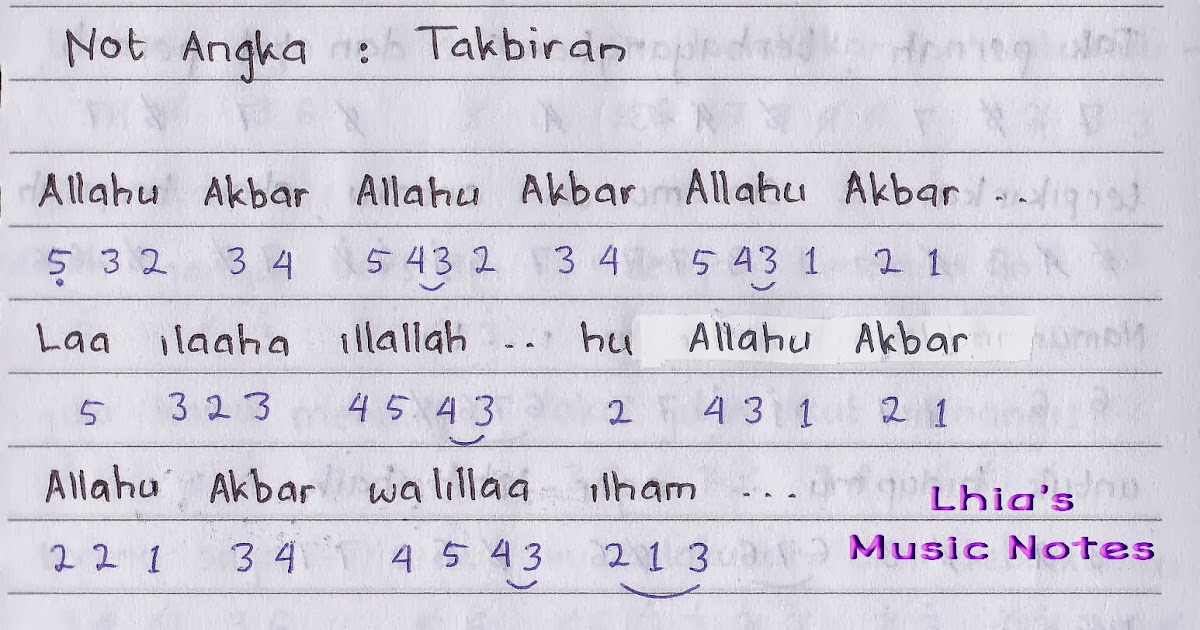 Not Angka : Takbiran
Allahu Akbar Allahu Akbar Allahu Akbar ...
5̣ 3 2 3 4 5 4 3 2 3 4 5 4 3 1 2 1
Laa ilaaha illallah ... hu Allahu Akbar
5 3 2 3 4 5 4 3 2 4 3 1 2 1
Allahu Akbar walillaa ilham ...
2 2 1 3 4 4 5 4 3 2 1 3
Lhia's
Music Notes